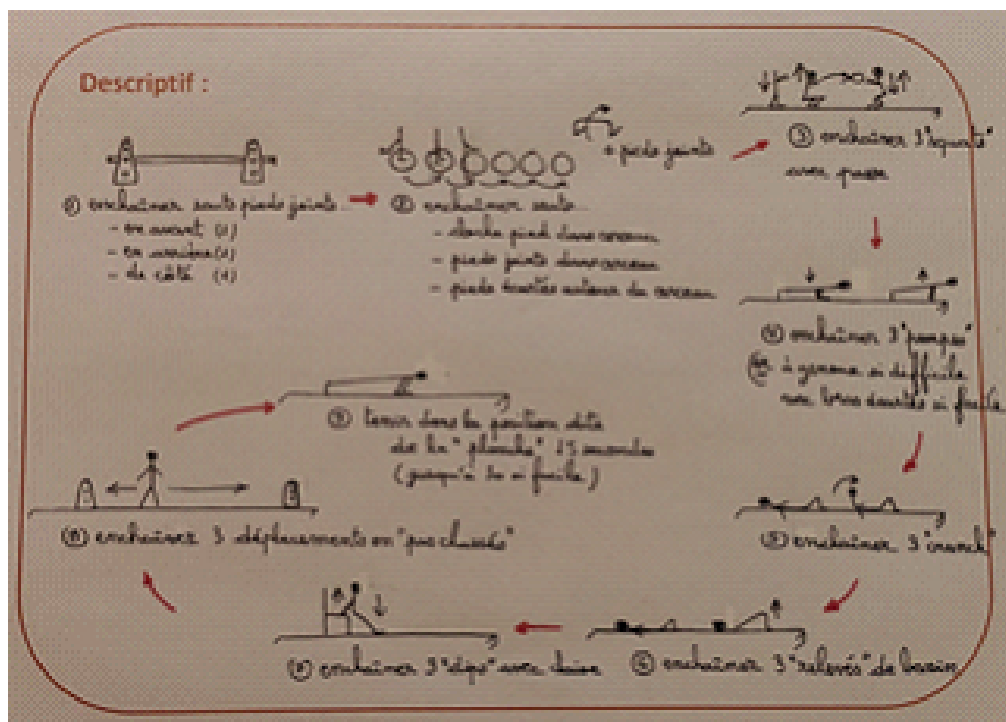 Descriptif :
① enchaîner sauts pieds joints
- en avant (1)
- en arrière (1)
- de côté (1)
② enchaîner sauts
- cloche pied dans cerceau
- pieds joints dans cerceau
- pieds écartés autour du cerceau
+ pieds joints
③ enchaîner 3 "squats"
avec
④ enchaîner 3 "pompes"
à genoux si difficile
bras écartés si facile
⑤ enchaîner 3 "crunch"
⑥ enchaîner 3 "relevés" de bassin
⑦ enchaîner 3 "dips" avec chaise
⑧ enchaîner 3 déplacements en "pas chassés"
⑨ tenir dans la position dite
de la "planche" 15 secondes
(jusqu'à 30 si facile)